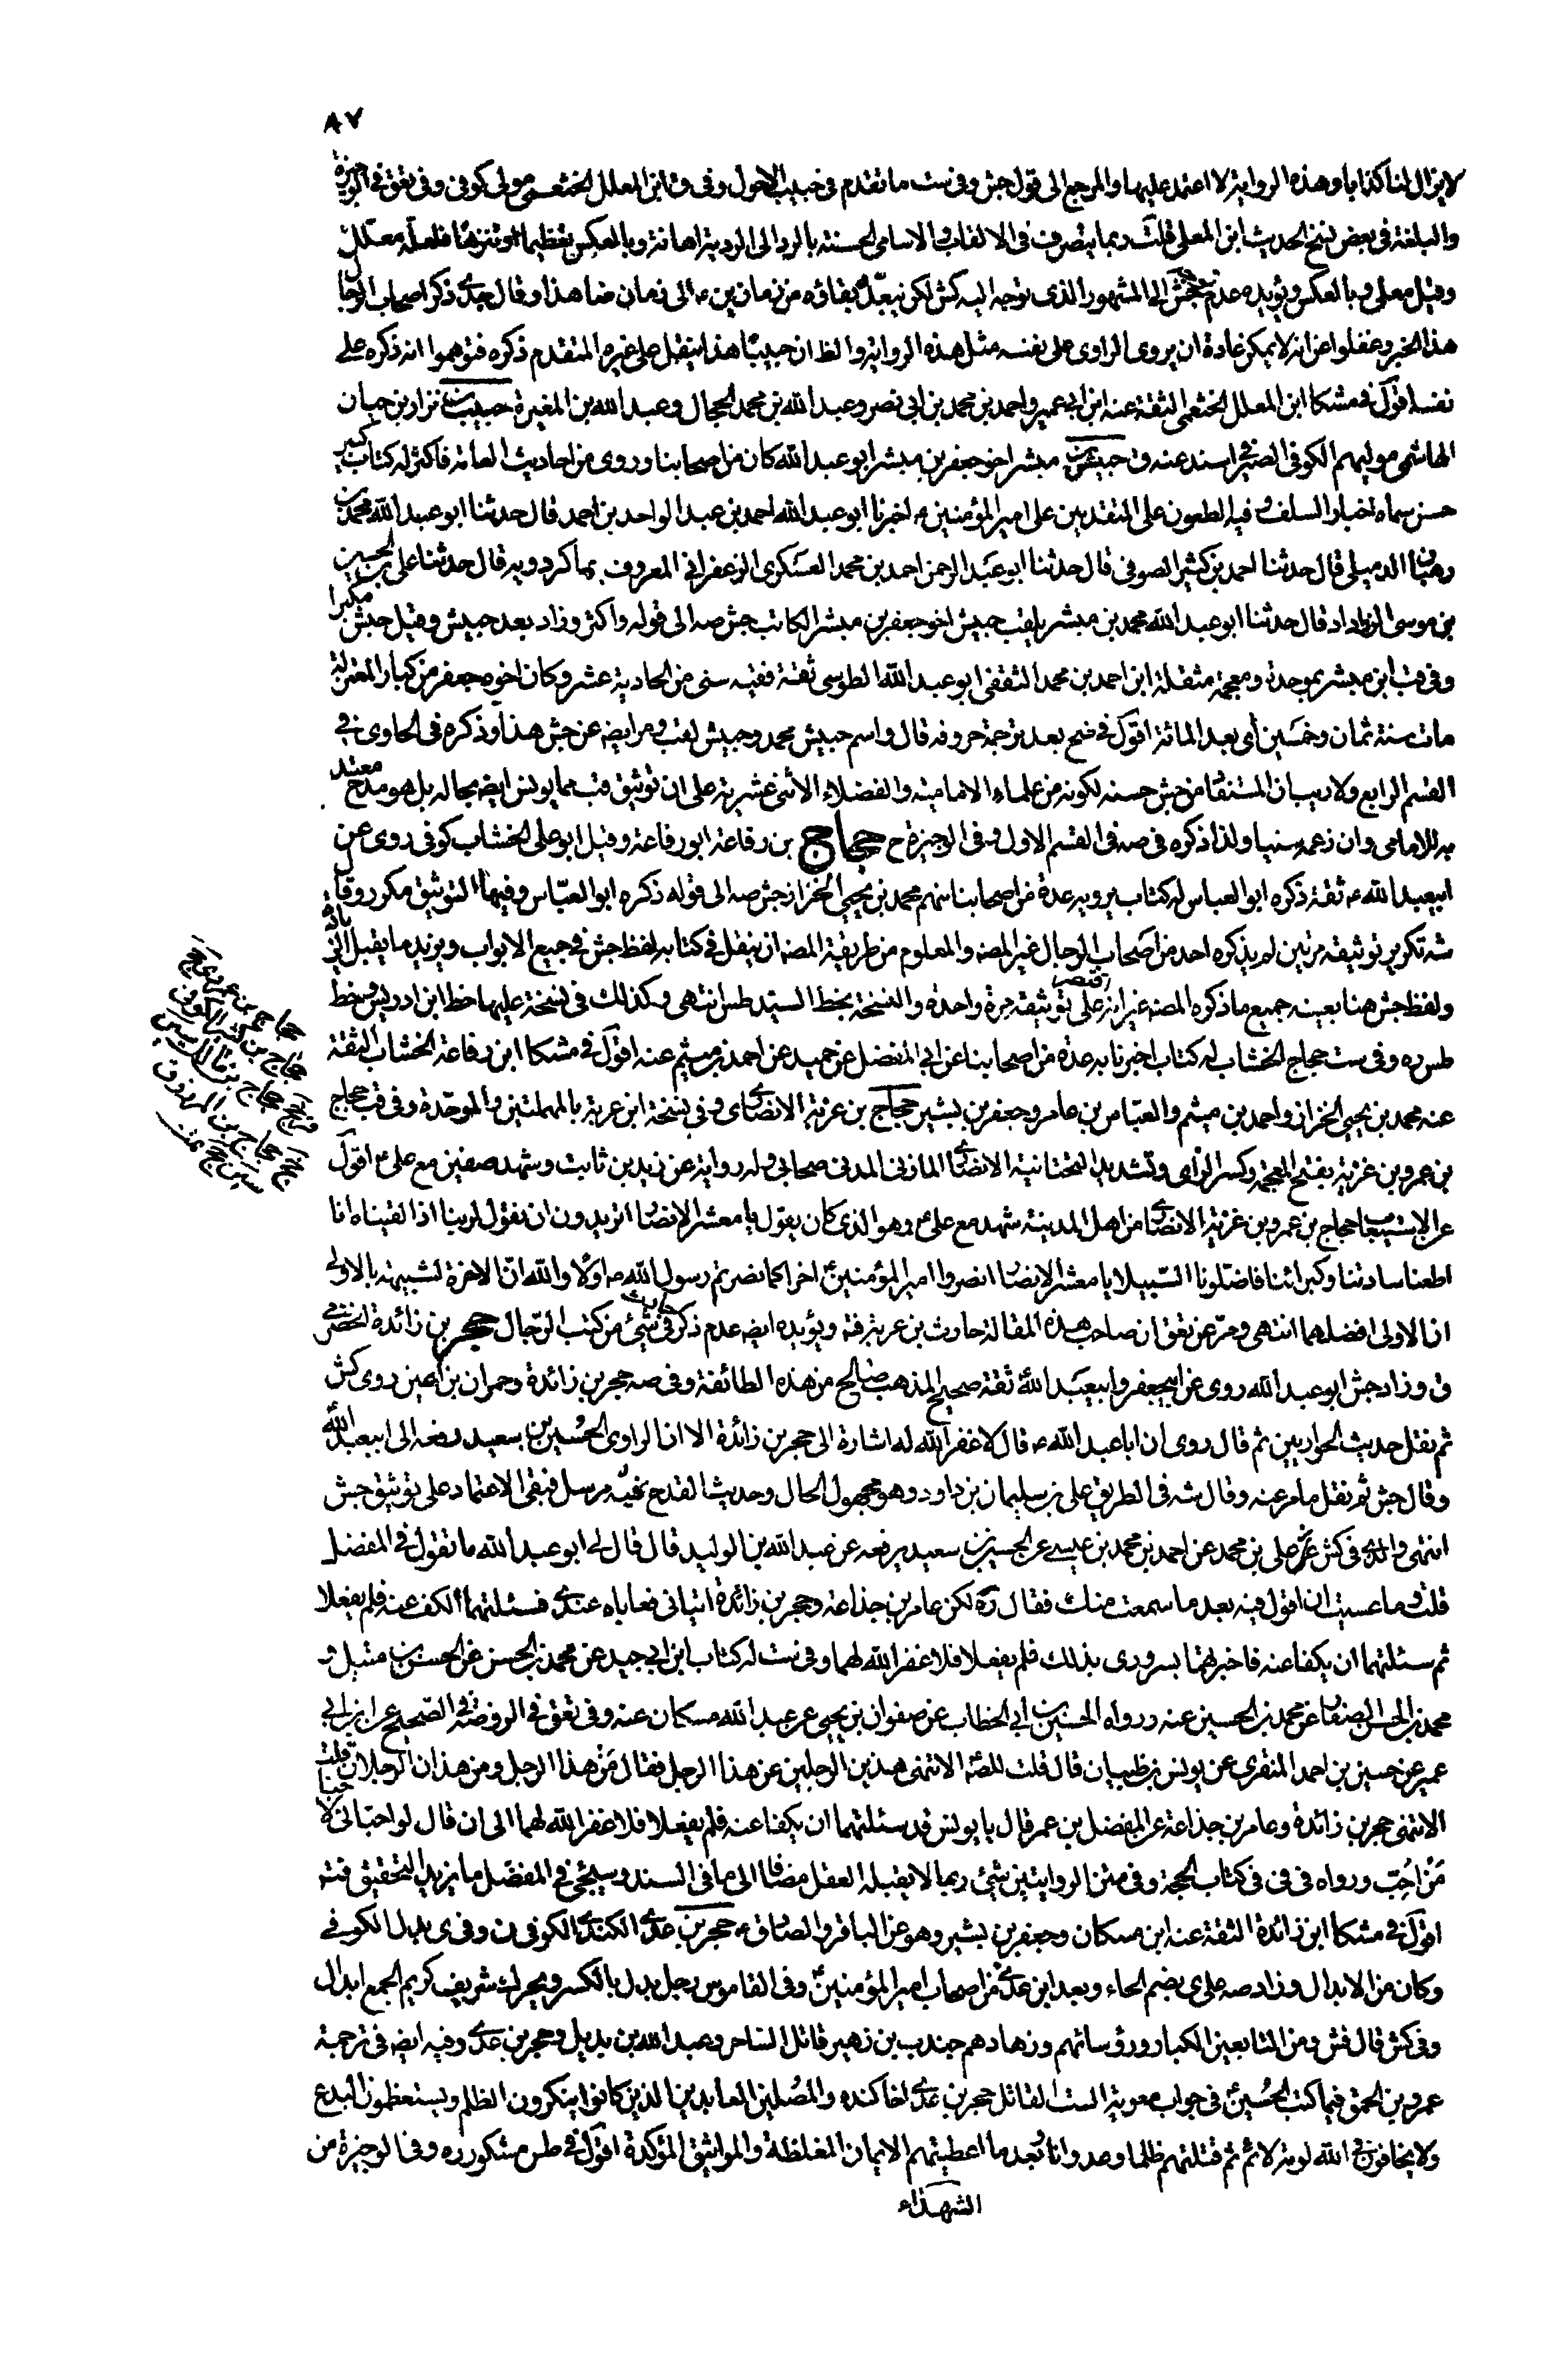 ٨٧
لا يزال لنا كذابا وهذه الرواية لا اعتمد عليها والمرجع الى قول جش وفى ست ما تقدم فى حبيب الاحول وفى ق ابن المعلل الخثعمى مولى كوفى وفى تعق فى الوجيزة
والبلغة فى بعض نسخ الحديث ابن المعلى قلت ربما يتصرف فى الالقاب والاسامى الحسنة بالرد الى الردية اهانة وبالعكس تعظيما او تنزها فلعله معلل
وقيل معلى وبالعكس ويؤيده عدم جش الى المشهور الذى توجه اليه كش لكن يبعد بقاؤه من زمان ين ع الى زمان ضا هذا وقال جدى ذكر اصحاب الرجال
هذا الخبر وغفلوا عن انه لا يمكن عادة ان يروى الراوى على نفسه مثل هذه الرواية والظ ان حبيبا هذا ينقل على غيره المتقدم ذكره فتوهموا انه ذكره على
نفسه اقول فى مشكا ابن المعلل الخثعمى الثقة عنه ابن ابى عمير واحمد بن محمد بن ابى نصر وعبد الله بن محمد الحجال وعبد الله بن المغيرة حبيب بن نزار بن حيان
الهاشمى موليهم الكوفى الصيرفى اسند عنه ق حبيش بن مبشر اخو جعفر بن مبشر ابو عبد الله كان من اصحابنا وروى من احاديث العامة فاكثر له كتاب كبير
حسن سماه اخبار السلف وفيه الطعون على المتقدمين على امير المؤمنين ع اخبرنا ابو عبد الله احمد بن عبد الواحد بن احمد قال حدثنا ابو عبد الله محمد بن
وهبان الدبيلى قال حدثنا احمد بن كثير الصوفى قال حدثنا ابو عبد الرحمن احمد بن محمد العسكرى الزعفرانى المعروف بماكردويه قال حدثنا على بن الحسين
بن موسى الزراد قال حدثنا ابو عبد الله محمد بن مبشر يلقب حبيش اخو جعفر بن مبشر الكاتب جش صه الى قوله واكثر وزاد بعد حبيش وقيل حبش مكبرا
وفى قب ابن مبشر بموحدة ومعجمة مثقلة ابن احمد بن محمد الثقفى ابو عبد الله الطوسى ثقة فقيه سنى من الحادية عشر وكان اخوه جعفر من كبار المعتزلة
مات سنة ثمان وخمسين اى بعد المائة اقول فى ضح بعد ترجمة حروفه قال واسم حبيش محمد وحبيش لقب ومر ايضه عن جش هذا وذكره فى الحاوى فى
القسم الرابع ولا ريب ان المستفاد من جش حسنه لكونه من علماء الامامية والفضلاء الاثنى عشرية على ان توثيق قب مما يونس ايضه بحاله بل هو مدح معتد
به للامامى وان زعمه سنيا ولذا ذكره فى صه فى القسم الاول وفى الوجيزة ح حجاج بن رفاعة ابو رفاعة وقيل ابو على الخشاب كوفى روى عن
ابيعبد الله ع ثقة ذكره ابو العباس له كتاب يرويه عدة من اصحابنا منهم محمد بن يحيى الخزاز جش صه الى قوله ذكره ابو العباس وفيها التوثيق مكرر وقال
شه تكرير توثيقه مرتين لم يذكره احد من اصحاب الرجال غير المصه والمعلوم من طريقة المصه ان ينقل فى كتابه لفظ جش فى جميع الابواب ويزيد ما يقبل الزيادة
ولفظ جش هنا بعينه جميع ما ذكره المصه غير انه اقتصر على توثيقه مرة واحدة والنسخة بخط السيد طس انتهى وكذلك فى نسخة عليها خط ابن ادريس وخط
طس ره وفى ست حجاج الخشاب له كتاب اخبرنا به عدة من اصحابنا عن ابى المفضل عن حميد عن احمد بن ميثم عنه اقول فى مشكا ابن رفاعة الخشاب الثقة
عنه محمد بن يحيى الخزاز واحمد بن ميثم والعباس بن عامر وجعفر بن بشير حجاج بن غزية الانصارى ى وفى نسخة ابن عربة بالمهملتين والموحدة وفى قب حجاج
بن عمرو بن غزية بفتح المعجمة وكسر الزاى وتشديد التحتانية الانصارى المازنى المدنى صحابى وله رواية عن زيد بن ثابت وشهد صفين مع على ع اقول
عن الاستيعاب حجاج بن عمرو بن غزية الانصارى من اهل المدينة شهد مع على ع وهو الذى كان يقول يا معشر الانصار اتريدون ان نقول لربنا اذا لقيناه انا
اطعنا سادتنا وكبرائنا فاضلونا السبيلا يا معشر الانصار انصروا امير المؤمنين اخرا كما نصرتم رسول الله ص اولا والله ان الاخرة لشبيهة بالاولى
ان الاولى افضلهما انتهى ومر عن تعق ان صاحب هذه المقالة حارث بن عربة فته ويؤيده ايضه عدم ذكر حارث فى شئ من كتب الرجال حجر بن زائدة الحضرمى
ق وزاد جش ابو عبد الله روى عن ابيجعفر وابيعبد الله ثقة صحيح المذهب صالح من هذه الطائفة وفى صه حجر بن زائدة وحمران بن اعين روى كش
ثم نقل حديث الحواريين ثم قال روى ان ابا عبد الله ع قال لا غفر الله له اشارة الى حجر بن زائدة الا ان الراوى الحسين بن سعيد رفعه الى ابيعبد الله
وقال جش ثم نقل ما مر عنه وقال شه فى الطريق على بن سليمان بن داود وهو مجهول الحال وحديث القدح فيه مرسل فبقى الاعتماد على توثيق جش
انتهى والذى فى كش عن على بن محمد عن احمد بن محمد بن عيسى عن الحسين بن سعيد يرفعه عن عبد الله بن الوليد قال قال لى ابو عبد الله ما تقول فى المفضل
قلت وما عسيت ان اقول فيه بعد ما سمعت منك فقال ره لكن عامر بن جذاعة وحجر بن زائدة اتيانى فعاباه عندى فسئلتهما الكف عنه فلم يفعلا
ثم سئلتهما ان يكفا عنه فاخبرتهما بسرورى بذلك فلم يفعلا فلا غفر الله لهما وفى ست له كتاب ابن ابى جيد عن محمد بن الحسن عن الحسن بن متيل و
محمد بن الحسن الصفار عن محمد بن الحسين عنه ورواه الحسين بن ابى الخطاب عن صفوان بن يحيى عن عبد الله مسكان عنه وفى تعق فى الروضة فى الصحيح عن ابن ابى
عمير عن حسين بن احمد المنقرى عن يونس بن ظبيان قال قلت للصه الا تنهى هذين الرجلين عن هذا الرجل فقال من هذا الرجل ومن هذان الرجلان قلت
الا تنهى حجر بن زائدة وعامر بن جذاعة عن المفضل بن عمر قال يا يونس قد سئلتهما ان يكفا عنه فلم يفعلا فلا غفر الله لهما الى ان قال لو احبانى لاحبا
من احب ورواه فى فى فى كتاب الحجة وفى متن الروايتين شئ ربما لا يقبله العقل مضافا الى ما فى السند وسيجئ فى المفضل ما يزيد التحقيق فته
اقول فى مشكا ابن زائدة الثقة عنه ابن مسكان وجعفر بن بشير وهو عن الباقر والصادق ع حجر بن عدى الكندى الكوفى ن وفى ى بدل الكوفى
وكان من الابدال وزاد صه على ى بضم الحاء وبعد ابن عدى من اصحاب امير المؤمنين وفى القاموس رجل بدل بالكسر ويحرك شريف كريم الجمع ابدال
وفى كش قال فش ومن التابعين الكبار ورؤسائهم وزهادهم جندب بن زهير قاتل الساحر وعبد الله بن بديل وحجر بن عدى وفيه ايضه فى ترجمة
عمرو بن الحمق فيما كتب الحسين فى جواب معوية الست القاتل حجر بن عدى اخا كنده والمصلين العابدين الذين كانوا ينكرون الظلم ويستعظمون البدع
ولا يخافون فى الله لومة لائم ثم قتلتهم ظلما وعدوانا بعد ما اعطيتهم الايمان المغلظة والمواثيق المؤكدة اقول فى طس مشكور ره وفى الوجيزة من
الشهداء